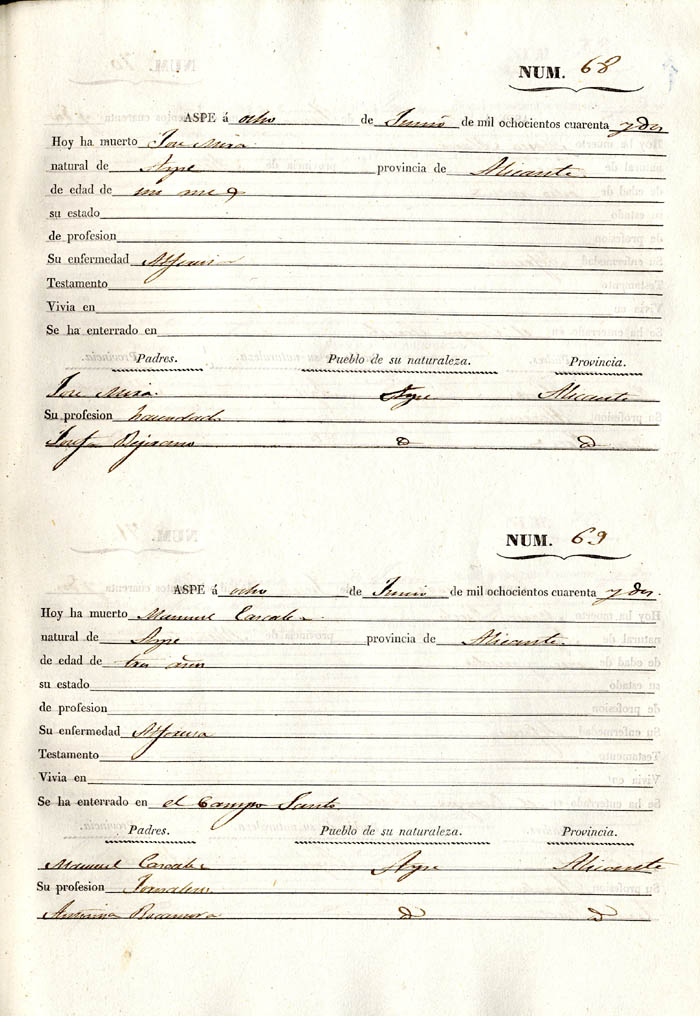 NUM. 68
ASPE á ocho de Junio de mil ochocientos cuarenta y dos
Hoy ha muerto Jose Mira
natural de Aspe provincia de Alicante
de edad de un mes
su estado
de profesion
Su enfermedad
Testamento
Vivia en
Se ha enterrado en
Padres. Pueblo de su naturaleza. Provincia.
Jose Mira. Aspe Alicante
Su profesion hacendado
Josefa Bejarano d d
NUM. 69
ASPE á ocho de Junio de mil ochocientos cuarenta y dos.
Hoy ha muerto Manuel
natural de Aspe provincia de Alicante.
de edad de tres años
su estado
de profesion
Su enfermedad
Testamento
Vivia en
Se ha enterrado en el Campo Santo
Padres. Pueblo de su naturaleza. Provincia.
Manuel Aspe Alicante
Su profesion Jornalero
Antonia Bocamora d d